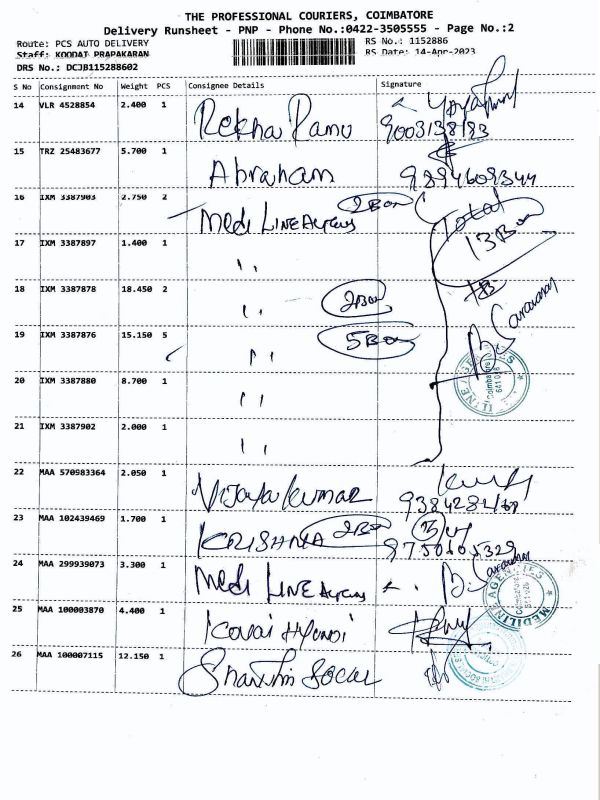 THE PROFESSIONAL COURIERS, COIMBATORE
Delivery Runsheet - PNP - Phone No.:0422-3505555 - Page No.:2
Route: PCS AUTO DELIVERY RS No.: 1152886
Staff: KOODAT PRAPAKARAN RS Date: 14-Apr-2023
DRS No.: DCJB115288602
S No Consignment No Weight PCS Consignee Details Signature
14 VLR 4528854 2.400 1 Rekha Ramu 9003138183
15 TRZ 25483677 5.700 1 Abraham 9894609344
16 IXM 3387903 2.750 2 Medi LINE 2 Box Total
13 Box
17 IXM 3387897 1.400 1 ''
18 IXM 3387878 18.450 2 '' 2 Box
19 IXM 3387876 15.150 5 '' 5 Box
20 IXM 3387880 8.700 1 ''
21 IXM 3387902 2.000 1 ''
22 MAA 570983364 2.050 1 Vijayakumar
23 MAA 102439469 1.700 1 KRISHNA 2 Box
24 MAA 299939073 3.300 1 Medi LINE
MEDILINE AGENCIES
25 MAA 100003870 4.400 1 Kovai
26 MAA 100007115 12.150 1 Shanthi Social